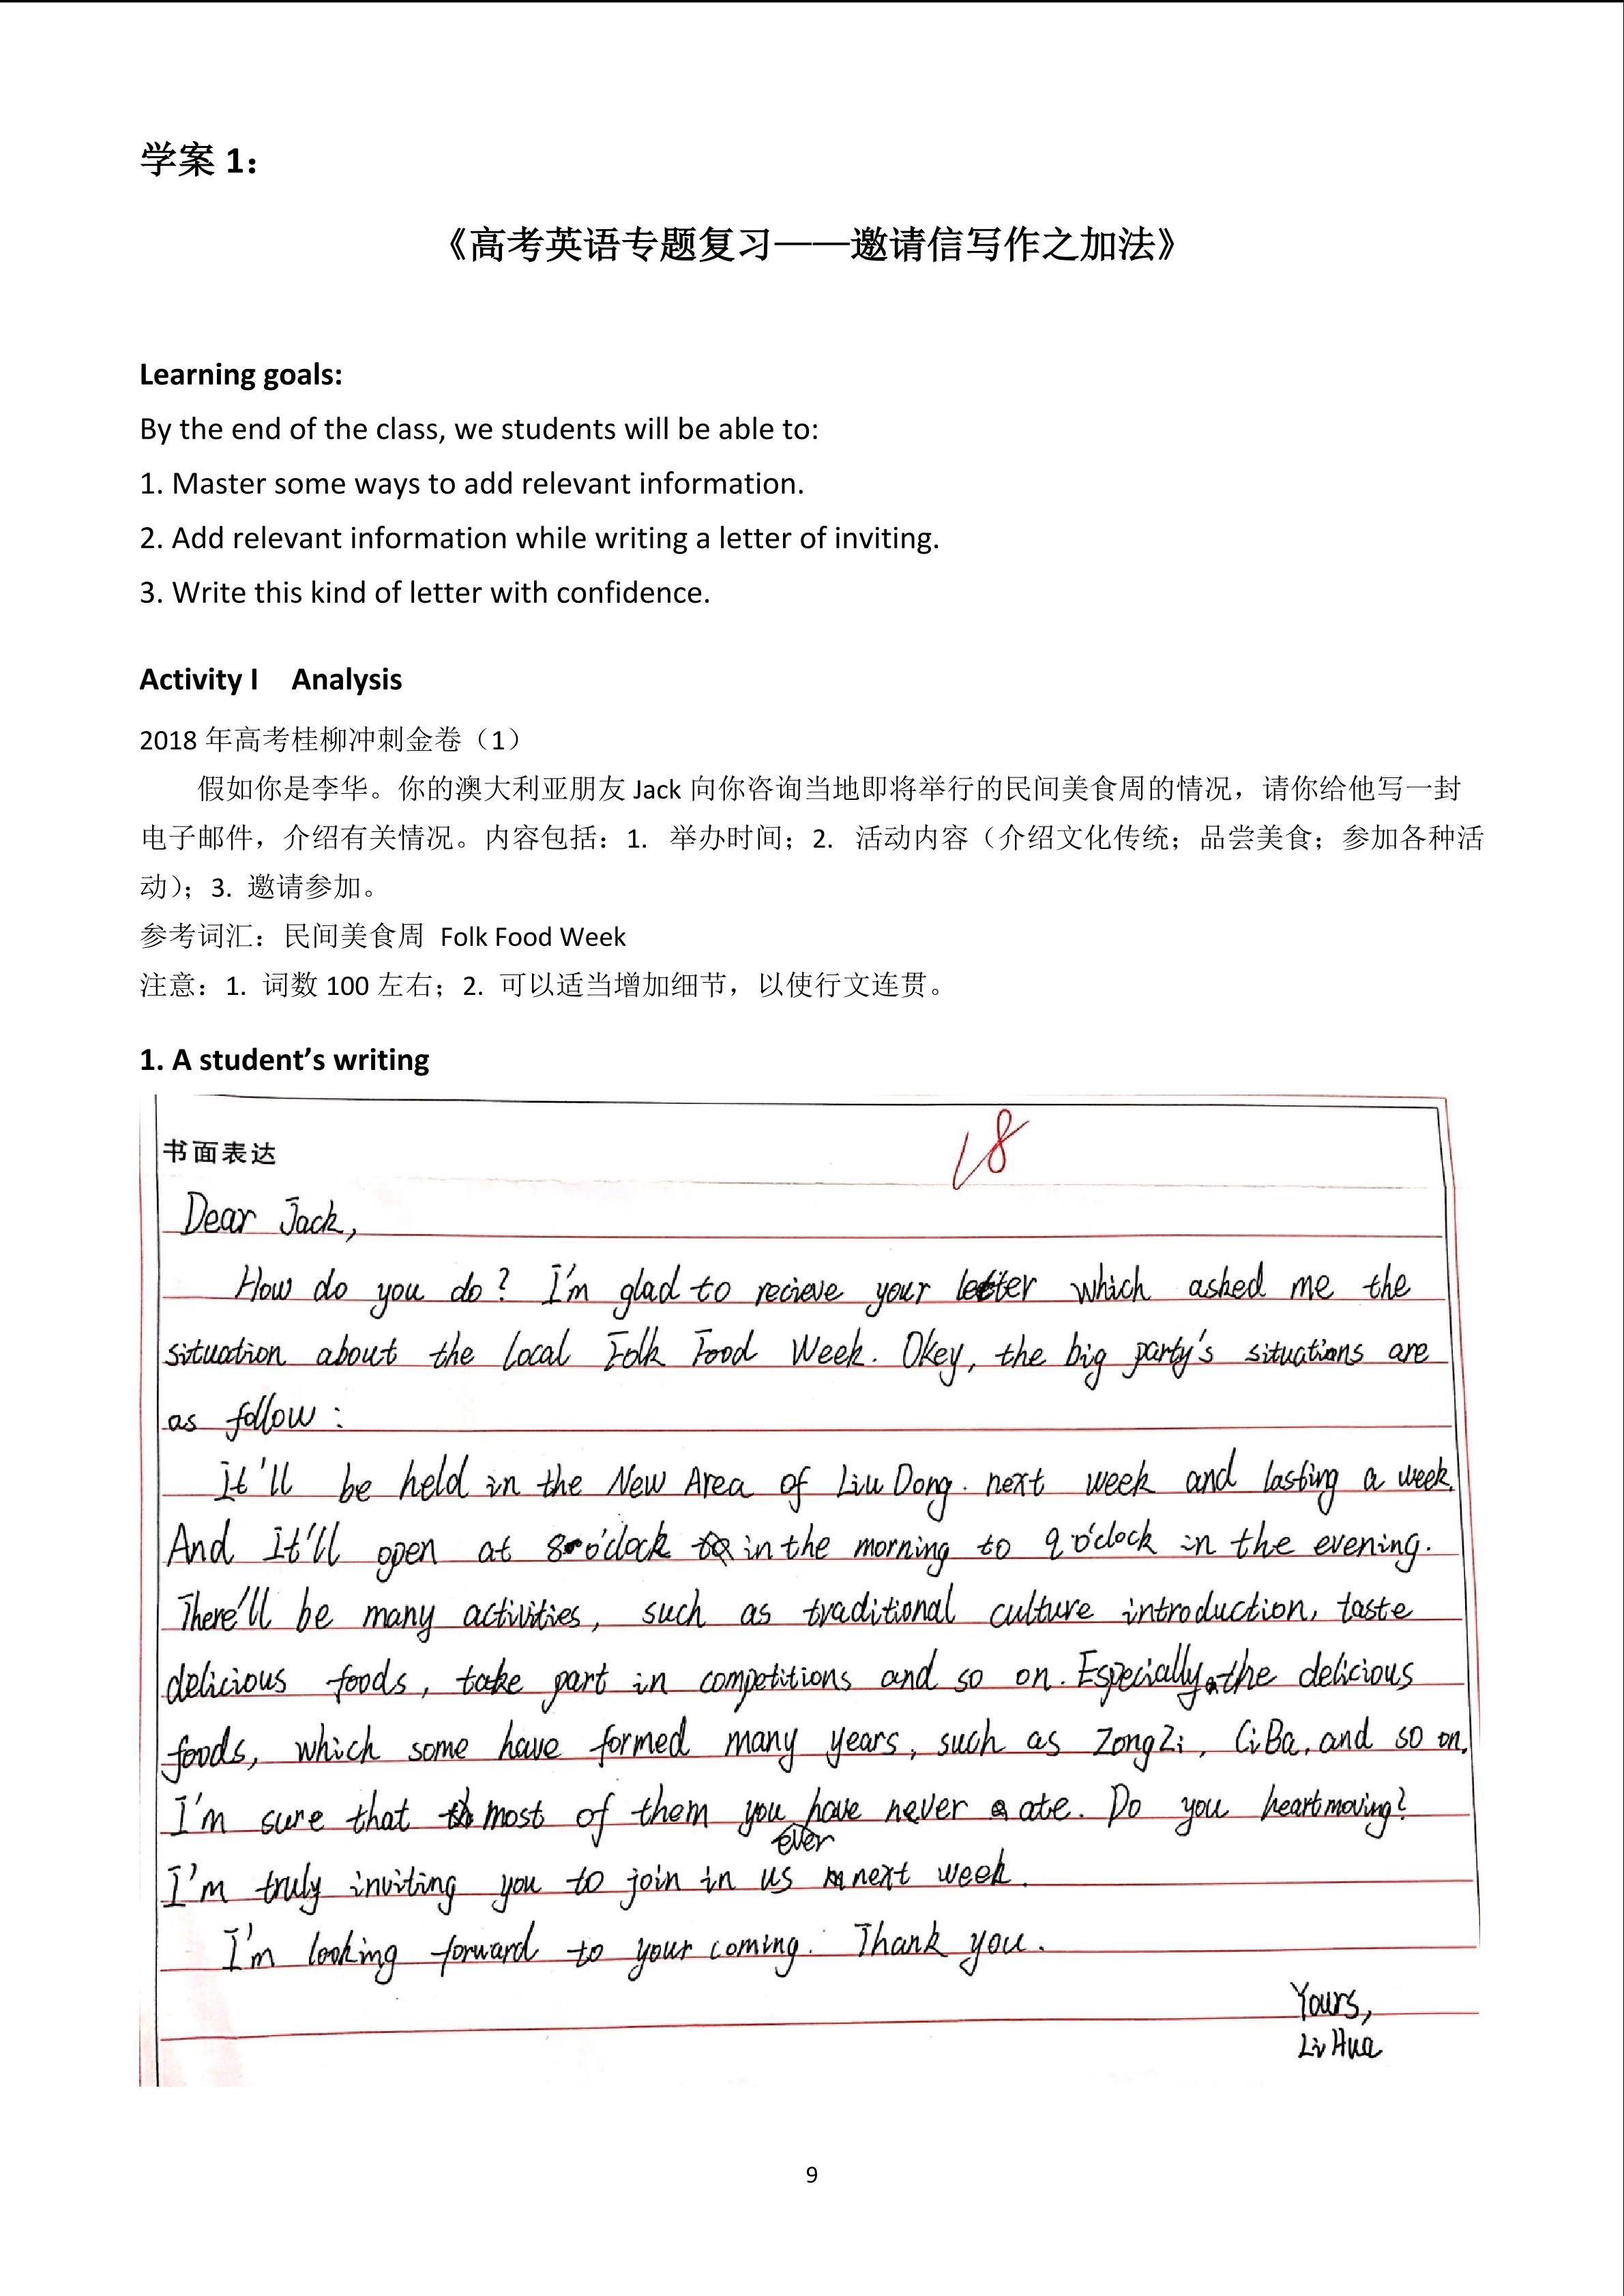 学案 1：
《高考英语专题复习——邀请信写作之加法》
Learning goals:
By the end of the class, we students will be able to:
1. Master some ways to add relevant information.
2. Add relevant information while writing a letter of inviting.
3. Write this kind of letter with confidence.
Activity I Analysis
2018 年高考桂柳冲刺金卷（1）
假如你是李华。你的澳大利亚朋友 Jack 向你咨询当地即将举行的民间美食周的情况，请你给他写一封
电子邮件，介绍有关情况。内容包括：1. 举办时间；2. 活动内容（介绍文化传统；品尝美食；参加各种活
动）；3. 邀请参加。
参考词汇：民间美食周 Folk Food Week
注意：1. 词数 100 左右；2. 可以适当增加细节，以使行文连贯。
1. A student’s writing
18
书面表达
Dear Jack,
How do you do? I'm glad to recieve your letter which asked me the
situation about the local Folk Food Week. Okey, the big party's situations are
as follow:
It'll be held in the New Area of Liu Dong. next week and lasting a week.
And It'll open at 8 o'clock in the morning to 9 o'clock in the evening.
There'll be many activities, such as traditional culture introduction, taste
delicious foods, take part in competitions and so on. Especially the delicious
foods, which some have formed many years, such as ZongZi, CiBa, and so on.
I'm sure that most of them you have never ate. Do you heart moving?
ever
I'm truly inviting you to join in us next week.
I'm looking forward to your coming. Thank you.
Yours,
Li Hua
9